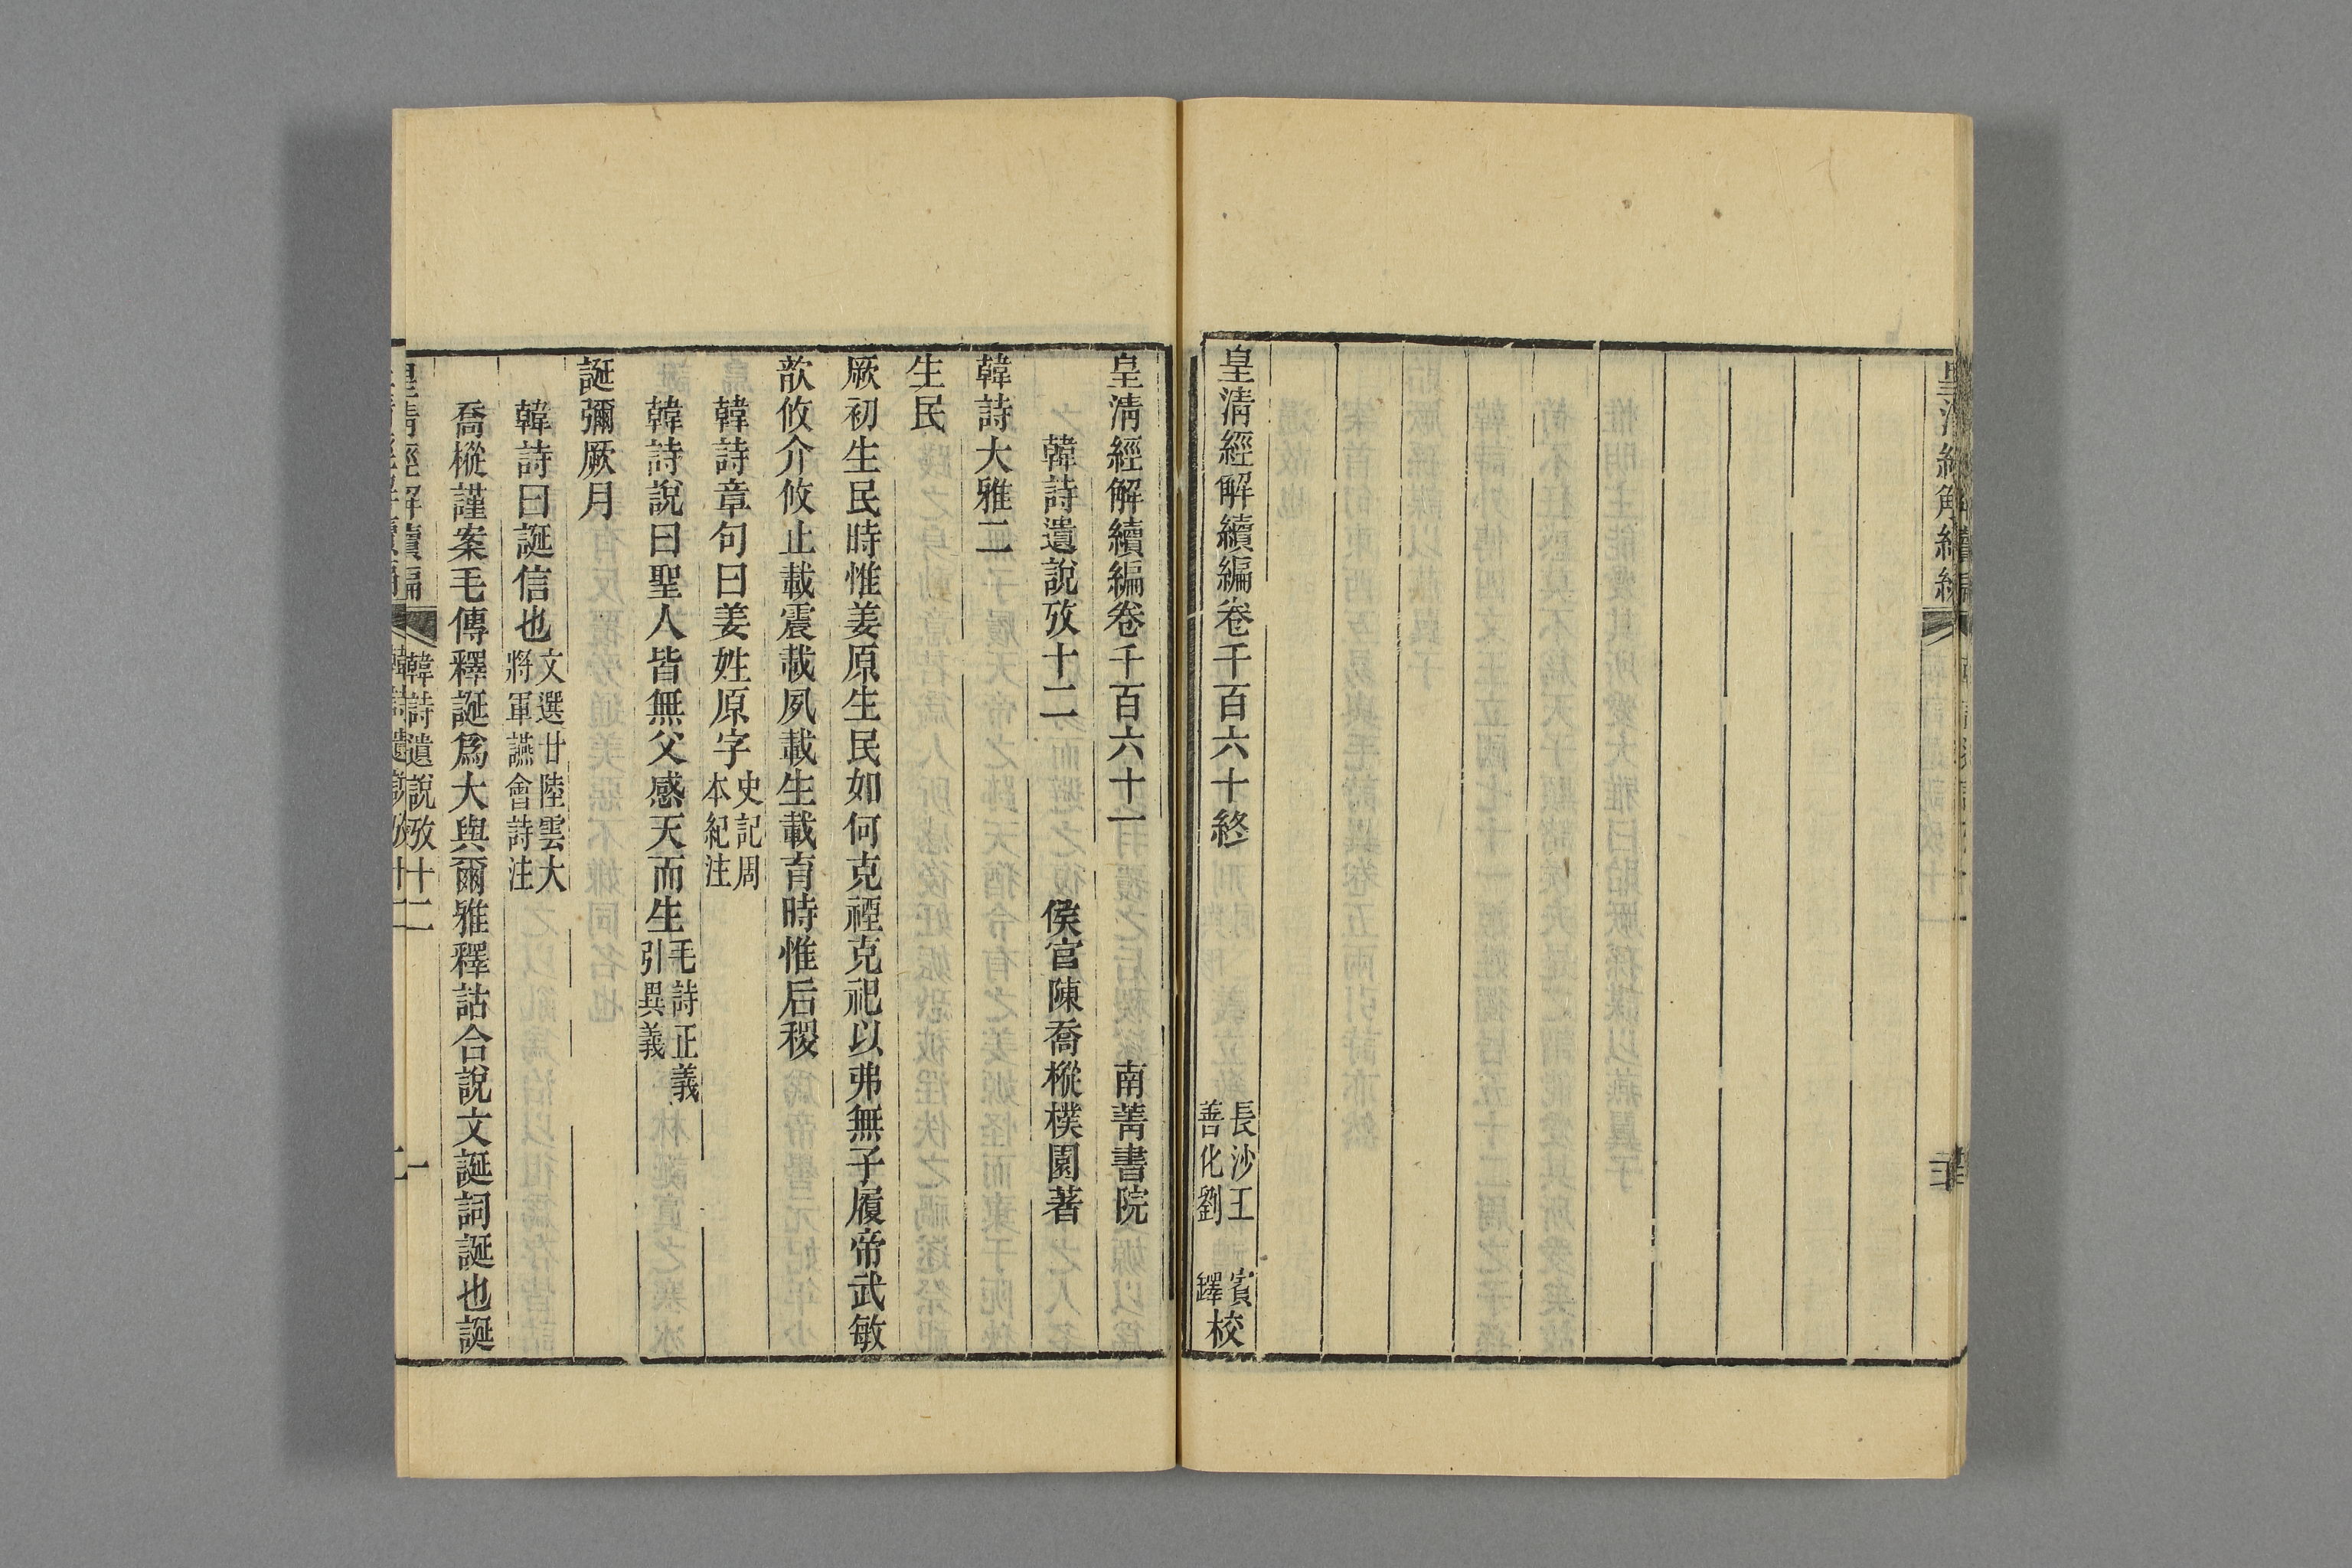 皇清經解續編卷千百六十終
長沙王 賓
善化劉 鐸
校
皇清經解續編卷千百六十一 南菁書院
韓詩遺說攷十二 侯官陳喬樅樸園著
韓詩大雅二
生民
厥初生民時惟姜原生民如何克禋克祀以弗無子履帝武敏
歆攸介攸止載震載夙載生載育時惟后稷
韓詩章句曰姜姓原字
史記周
本紀注
韓詩說曰聖人皆無父感天而生
毛詩正義
引異義
誕彌厥月
韓詩曰誕信也
文選廿陸雲大
將軍讌會詩注
喬樅謹案毛傳釋誕爲大與爾雅釋詁合說文誕詞誕也誕
皇清經解續編 韓詩遺說攷十二 一